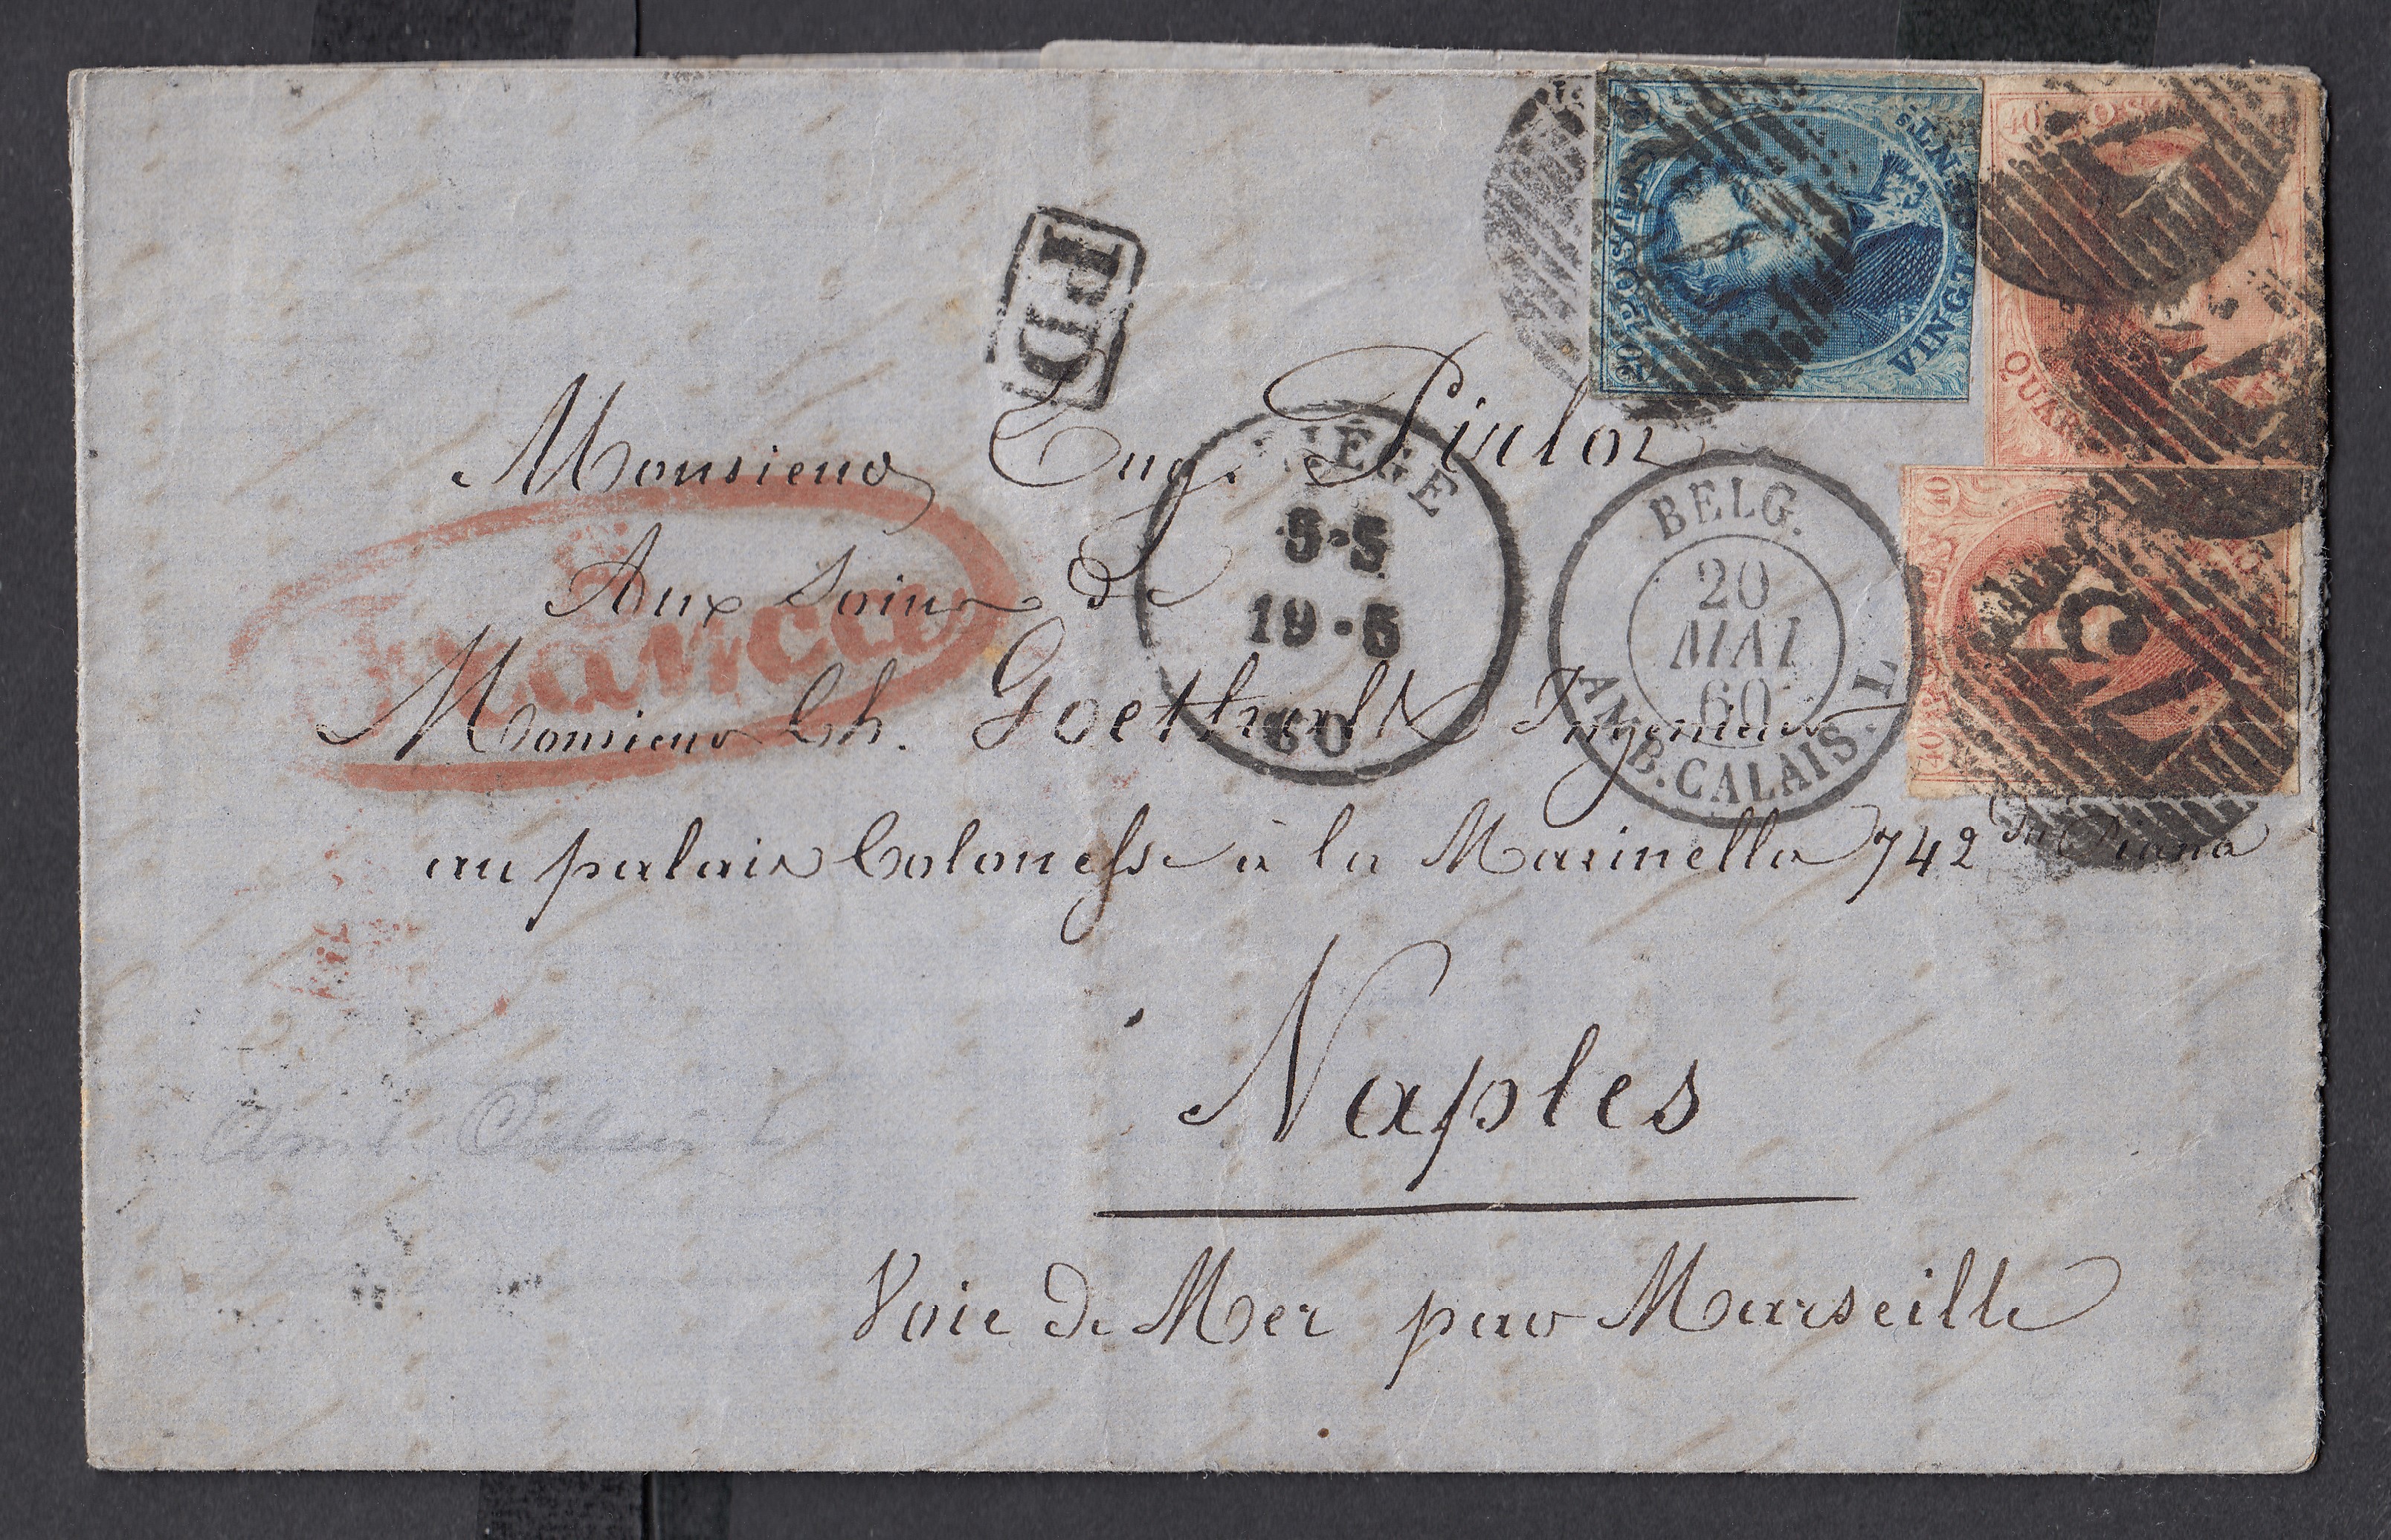 PD
20 POSTES 20
VINGT CENTS
40 POSTES
QUAR
40 POSTES 40
Monsieur Eug. Pirlot
Aux soins de
Monsieur Ch. Goethals Ingénieur
au palais Colonesse à la Marinella 742
Naples
Voie de Mer par Marseille
Franca
LIÉGE
5-5
19-5
60
BELG.
20
MAI
60
AMB. CALAIS. L
73